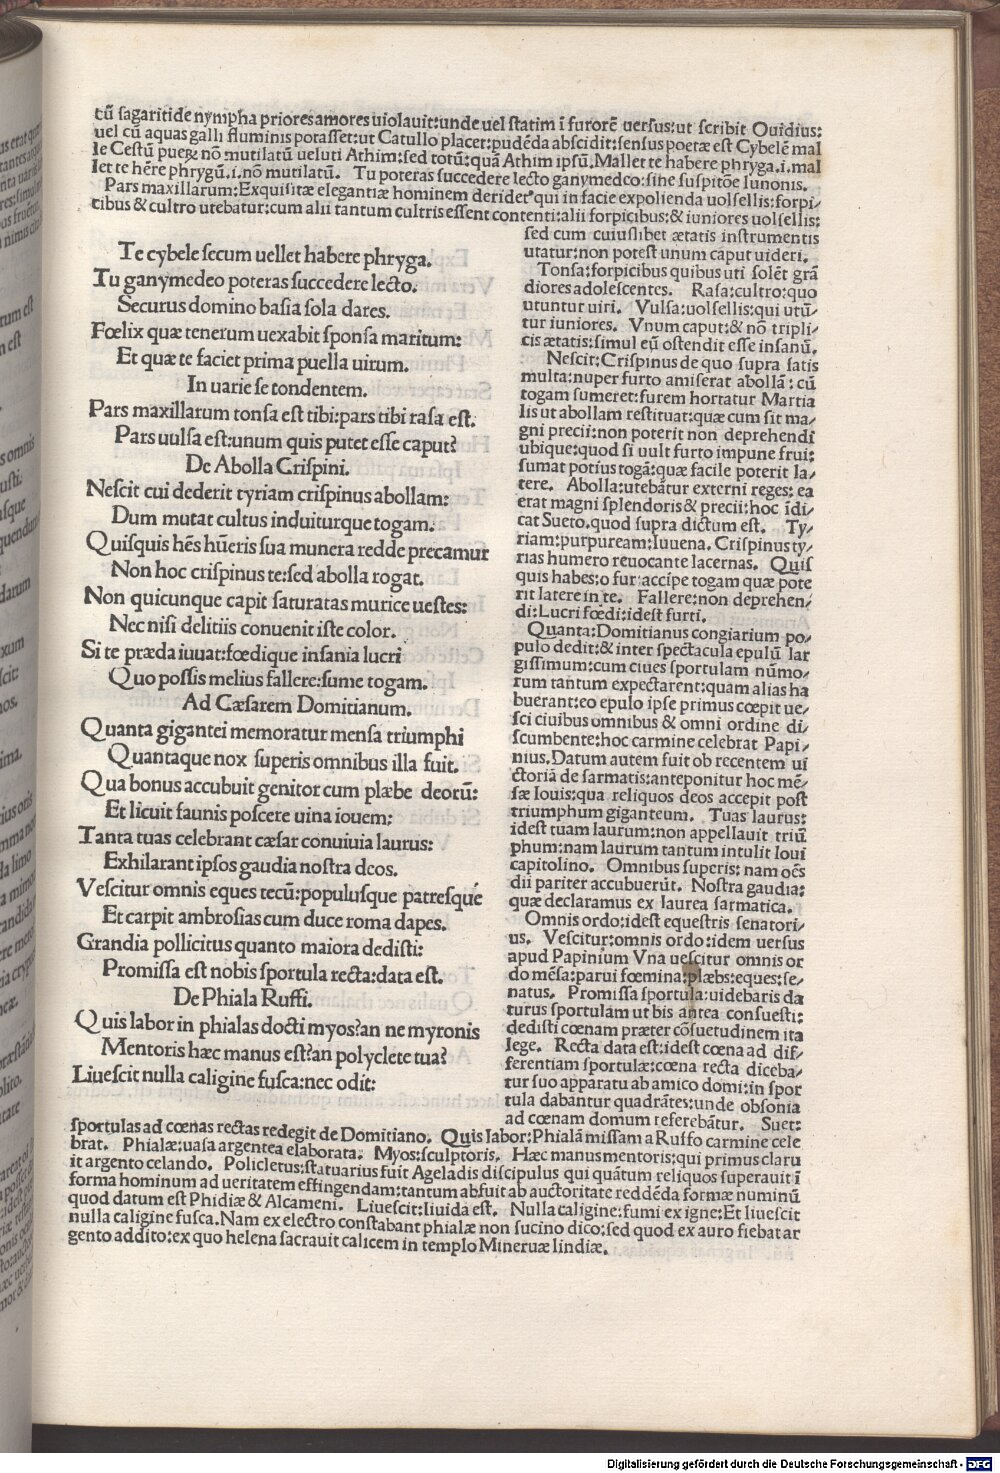 cũ sagaritide nympha priores amores uiolauit:unde uel statim ĩ furorẽ uersus:ut scribit Ouidius:
uel cũ aquas galli fluminis potasset:ut Catullo placet:pudẽda abscidit:sensus poetæ est Cybelẽ mal
le Cestũ puerũ nõ mutilatũ ueluti Athim:sed totũ:quã Athim ipsũ. Mallet te habere phryga.i.mal
let te hẽre phrygũ.i.nõ mutilatũ. Tu poteras succedere lecto ganymedeo:sine suspitõe Iunonis.
Pars maxillarum:Exquisitæ elegantiæ hominem deridet qui in facie expolienda uolsellis:forpi/
cibus & cultro utebatur:cum alii tantum cultris essent contenti:alii forpicibus:& iuniores uolsellis:
Te cybele secum uellet habere phryga.
Tu ganymedeo poteras succedere lecto.
Securus domino basia sola dares.
Fœlix quæ tenerum uexabit sponsa maritum:
Et quæ te faciet prima puella uirum.
In uarie se tondentem.
Pars maxillarum tonsa est tibi:pars tibi rasa est.
Pars uulsa est:unum quis putet esse caput?
De Abolla Crispini.
Nescit cui dederit tyriam crispinus abollam:
Dum mutat cultus induiturque togam.
Quisquis hẽs hũeris sua munera redde precamur
Non hoc crispinus te:sed abolla rogat.
Non quicunque capit saturatas murice uestes:
Nec nisi delitiis conuenit iste color.
Si te præda iuuat:fœdique insania lucri
Quo possis melius fallere:sume togam.
Ad Cæsarem Domitianum.
Quanta gigantei memoratur mensa triumphi
Quantaque nox superis omnibus illa fuit.
Qua bonus accubuit genitor cum plæbe deorũ:
Et licuit faunis poscere uina iouem:
Tanta tuas celebrant cæsar conuiuia laurus:
Exhilarant ipsos gaudia nostra deos.
Vescitur omnis eques tecũ:populusque patresque
Et carpit ambrosias cum duce roma dapes.
Grandia pollicitus quanto maiora dedisti:
Promissa est nobis sportula recta:data est.
De Phiala Ruffi.
Quis labor in phialas docti myos?an ne myronis
Mentoris hæc manus est?an polyclete tua?
Liuescit nulla caligine fusca:nec odit:
sed cum cuiuslibet ætatis instrumentis
utatur:non potest unum caput uideri.
Tonsa:forpicibus quibus uti solẽt grã
diores adolescentes. Rasa:cultro:quo
utuntur uiri. Vulsa:uolsellis:qui utũ/
tur iuniores. Vnum caput:& nõ tripli/
cis ætatis:simul eũ ostendit esse insanũ.
Nescit:Crispinus de quo supra satis
multa:nuper furto amiserat abollã: cũ
togam sumeret:furem hortatur Martia
lis ut abollam restituat:quæ cum sit ma/
gni precii:non poterit non deprehendi
ubique:quod si uult furto impune frui:
sumat potius togã:quæ facile poterit la/
tere. Abolla:utebãtur externi reges: ea
erat magni splendoris & precii:hoc ĩdi/
cat Sueto.quod supra dictum est. Ty/
riam:purpuream:Iuuena. Crispinus ty/
rias humero reuocante lacernas. Quis
quis habes:o fur:accipe togam quæ pote
rit latere in te. Fallere:non deprehen/
di:Lucri fœdi:idest furti.
Quanta:Domitianus congiarium po/
pulo dedit:& inter spectacula epulũ lar
gissimum:cum ciues sportulam nũmo/
rum tantum expectarent:quam alias ha
buerant:eo epulo ipse primus cœpit ue/
sci ciuibus omnibus & omni ordine di/
scumbente:hoc carmine celebrat Papi/
nius.Datum autem fuit ob recentem ui
ctoriã de sarmatis:anteponitur hoc mẽ/
sæ Iouis:qua reliquos deos accepit post
triumphum giganteum. Tuas laurus:
idest tuam laurum:non appellauit triũ/
phum:nam laurum tantum intulit Ioui
capitolino. Omnibus superis: nam oẽs
dii pariter accubuerũt. Nostra gaudia:
quæ declaramus ex laurea sarmatica.
Omnis ordo:idest equestris senatori/
us. Vescitur:omnis ordo:idem uersus
apud Papinium Vna uescitur omnis or
do mẽsa:parui fœmina:plæbs:eques:se/
natus. Promissa sportula:uidebaris da
turus sportulam ut bis antea consuesti:
dedisti cœnam præter cõsuetudinem ita
lege. Recta data est:idest cœna ad dif/
ferentiam sportulæ:cœna recta diceba/
tur suo apparatu ab amico domi:in spor
tula dabantur quadrãtes:unde obsonia
ad cœnam domum referebãtur. Suet:
sportulas ad cœnas rectas redegit de Domitiano. Quis labor:Phialã missam a Ruffo carmine cele
brat. Phialæ:uasa argentea elaborata. Myos:sculptoris. Hæc manus mentoris:qui primus claru
it argento celando. Policletus:statuarius fuit Ageladis discipulus qui quãtum reliquos superauit ĩ
forma hominum ad ueritatem effingendam:tantum abfuit ab auctoritate reddẽda formæ numinũ
quod datum est Phidiæ & Alcameni. Liuescit:liuida est. Nulla caligine:fumi ex igne:Et liuescit
nulla caligine fusca.Nam ex electro constabant phialæ non sucino dico:sed quod ex auro fiebat ar
gento addito:ex quo helena sacrauit calicem in templo Mineruæ lindiæ.
Digitalisierung gefördert durch die Deutsche Forschungsgemeinschaft - DFG